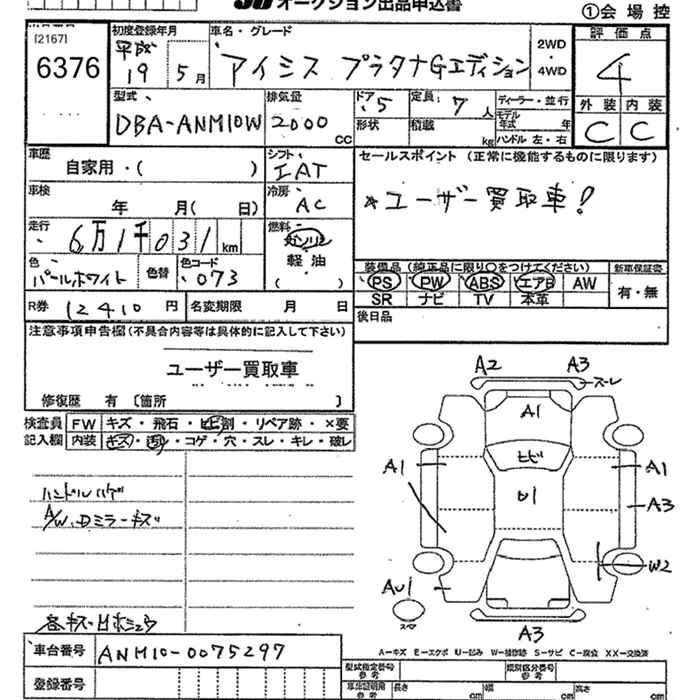 オークション出品申込書
①会場控
[2167]
6376
初度登録年月
平成
19 5月
車名・グレード
アイシス プラタナGエディション
2WD
・
4WD
評価点
4
外装 内装
C C
型式
DBA-ANM10W
排気量
2000
CC
ドア
5
定員
7人
形状
積載
kg
ディーラー・並行
モデル年式 年
ハンドル 左・右
車歴
自家用・( )
シフト
IAT
車検
年 月( 日)
冷房
AC
走行
6万1千031 km
燃料
ガソリン
軽油
( )
色
パールホワイト
色替
色コード
073
R券
12410 円
名変期限 月 日
セールスポイント (正常に機能するものに限ります)
*ユーザー買取車!
装備品 (純正品に限り○をつけてください)
新車保証書
PS PW ABS エアB AW
SR ナビ TV 本革
有・無
後日品
注意事項申告欄(不具合内容等は具体的に記入して下さい)
ユーザー買取車
修復歴 有 〔箇所 〕
検査員
記入欄
FW キズ・飛石・ヒビ割・リペア跡・×要
内装 キズ・汚レ・コゲ・穴・スレ・キレ・破レ
ハンドルハゲ
A/W、Dミラーキズ
各キズ・凹
A2 A3
スーレ
A1
ヒビ
A1 U1 A1
A3
W2
AU1
スマ
A3
A－キズ E－エクボ U－凹み W－補修跡 S－サビ C－腐食 XX－交換済
車台番号
ANM10-0075297
登録番号
型式指定番号
参考
類別区分番号
参考
車庫証明用
参考
長さ cm
幅 cm
高さ cm